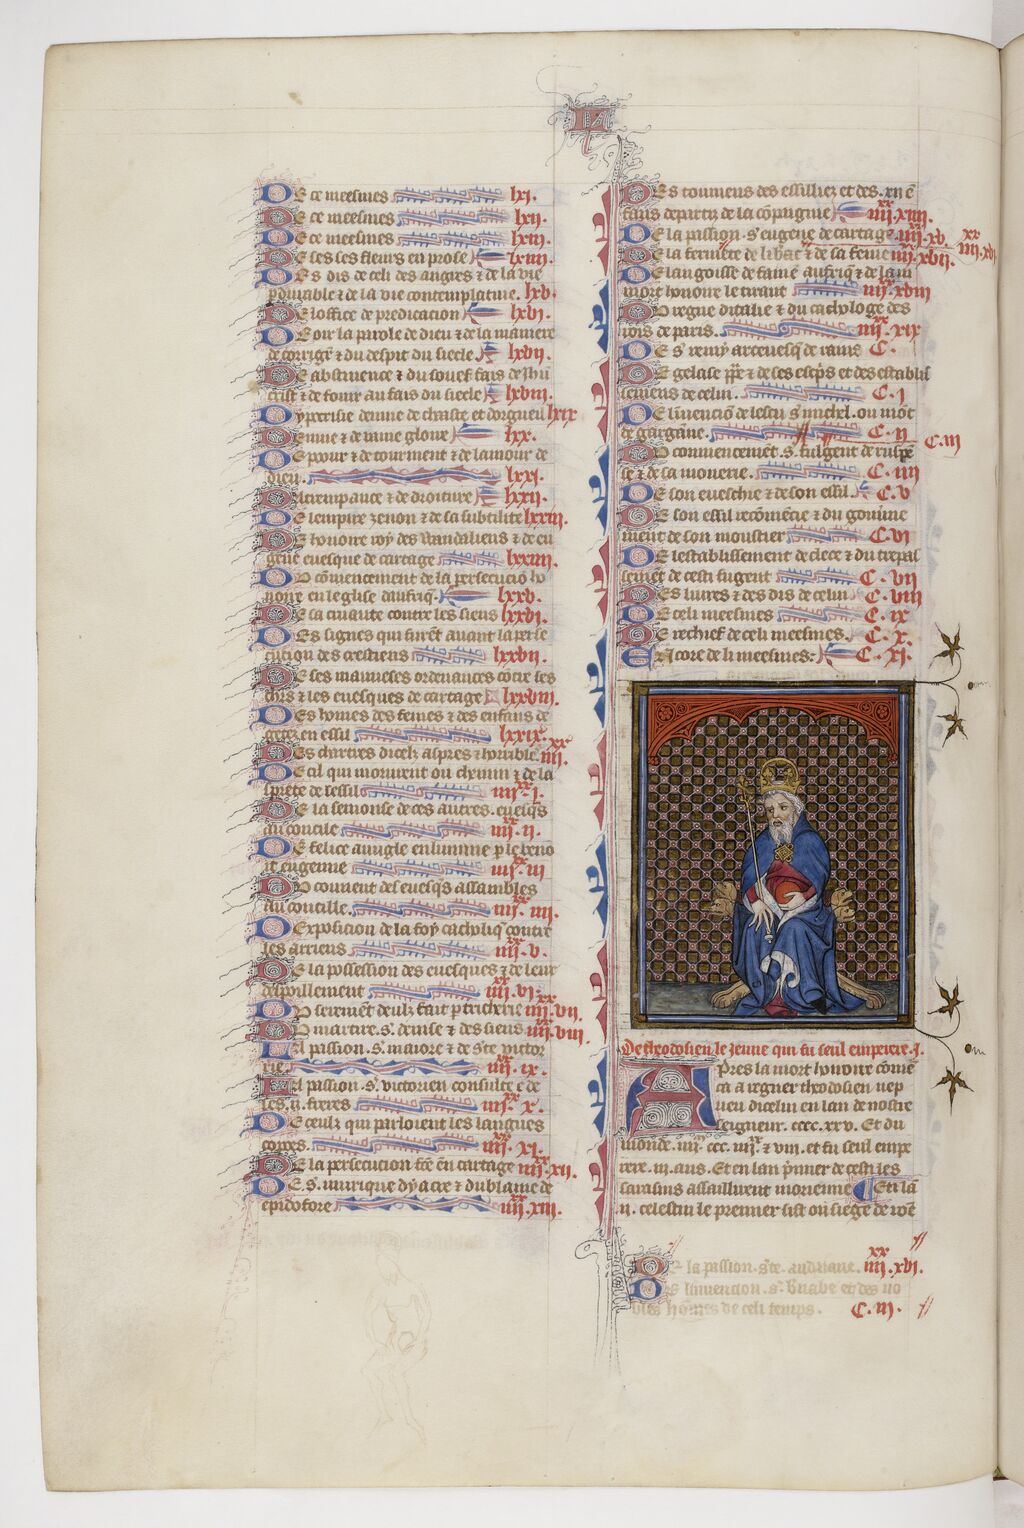 De ce meesmes lxi.
De ce meesmes lxii.
De ce meesmes lxiii.
De ses fleurs en prose lxiiii.
Des dis de celi des angres ⁊ de la vie
pdurable ⁊ de la vie contemplative. lxv.
De loffice de predication lxvi.
De oir la parole de dieu ⁊ de la maniere
de corrigr̄ ⁊ du despit du siecle. lxvii.
De abstinence ⁊ du souef fais de ihū
crist ⁊ de fouir au fais du siecle lxviii.
Dypcrisie denuie de chaste et dorgueil lxix
Denuie ⁊ de vaine gloire lxx.
Despoir ⁊ de tourment ⁊ de lamour de
dieu. lxxi.
Datrempance ⁊ de droiture lxxii.
De lempire zenon ⁊ de sa subtilite lxxiii.
De honoire roy des wandaliens ⁊ de eu
gene evesque de cartage lxxiiii.
Du cōmencement de la persecucio ho
noire en leglise daufriq̄. lxxv.
De sa cruaute contre les siens lxxvi.
Des signes qui furēt avant la perse
cution des crestiens lxxvii.
De ses mauveses ordenances cōtre les
clers ⁊ les evesques de cartage lxxviii.
Des homes des femes ⁊ des enfans de
getez en essil lxxix.
Des chartres diceli aspres ⁊ horrible. xx iiii.
De cil qui morurent ou chemin ⁊ de la
sprete de lessil xx iiii. i.
De la semonse de ces autres evesq̄s
au concile xx iiii. ii.
De felice avugle enlumine p le beno
it eugenne xx iiii. iii
Du couvent des evesq̄s assambles
au concille. xx iiii. iiii.
De Exposicion de la foy catholiq̄ contre
les arriens xx iiii. v.
De la possession des evesques ⁊ de leur
despoillement xx iiii. vi.
Du serement deulz fait p tricherie xx iiii. vii
Du martire. s. denise ⁊ des siens xx iiii. viii
La passion. sͭ. maiore ⁊ de ste victor
rie. xx iiii. ix.
La passion. sͭ. victorien consulte ⁊ de
ses. ii. freres xx iiii. x.
De ceulz qui parloient les langues
copees. xx iiii. xi.
De la persecucion fcē en cartage xx iiii. xii.
De s. murique dyacre ⁊ du blasme de
epidofore xx iiii. xiii.
Des tourmens des essilliez et des. xii ē
fans departis de la cōpaignie xx iiii. xiiii.
De la passion. s' eugene de cartage xx iiii. xv.
xx iiii. xvi
De la fermete de libac ⁊ de sa feme xx iiii. xvii.
De langoisse de famē aufriq̄ ⁊ de la m
mort honoire le tirant xx iiii. xviii
Du regne ditalie ⁊ du cathyloge des
rois de paris. xx iiii. xix
De s' remy arcevesq̄ de rains C.
De gelase ppe ⁊ de ses escp̄s et des establis
semens de celui. C. i
De linvencio de lesglise s' michel. ou mōt
de gargane. C. ii
C. iii
Du commencemēt. s. fulgent de ruspe
se ⁊ de sa moniere. C. iiii
De son eveschie ⁊ de son essil. C. v
De son essil recōmēcie ⁊ du gouvne
ment de son moustier C. vi
De lestablissement de clerc ⁊ du trepas
sement de cesti fugent C. vii
Des livres ⁊ des dis de celui. C. viii
De celi meesmes C. ix
De rechief de celi meesmes. C. x.
Encore de li meesmes: C. xi.
De theodosien le jeune qui fu seul emperere. i.
Apres la mort honoire cōmē
ca a regner theodosien nep
veu dicelui en lan de nostre
seigneur. cccc. xxv. Et du
monde. iiii. ccc. iiii xx ⁊ viii. et fu seul empe
rere. iii. ans. Et en lan p̄mier de cesti les
sarasins assaillirent morienne ¶ Et i lā
ii. celestin le premier sist ou siege de rōe
De la passion. ste. audriane. xx iiii. xvi.
De linvencion. s'. bnabe et des no
bles hōmes de celi temps. C. iii.